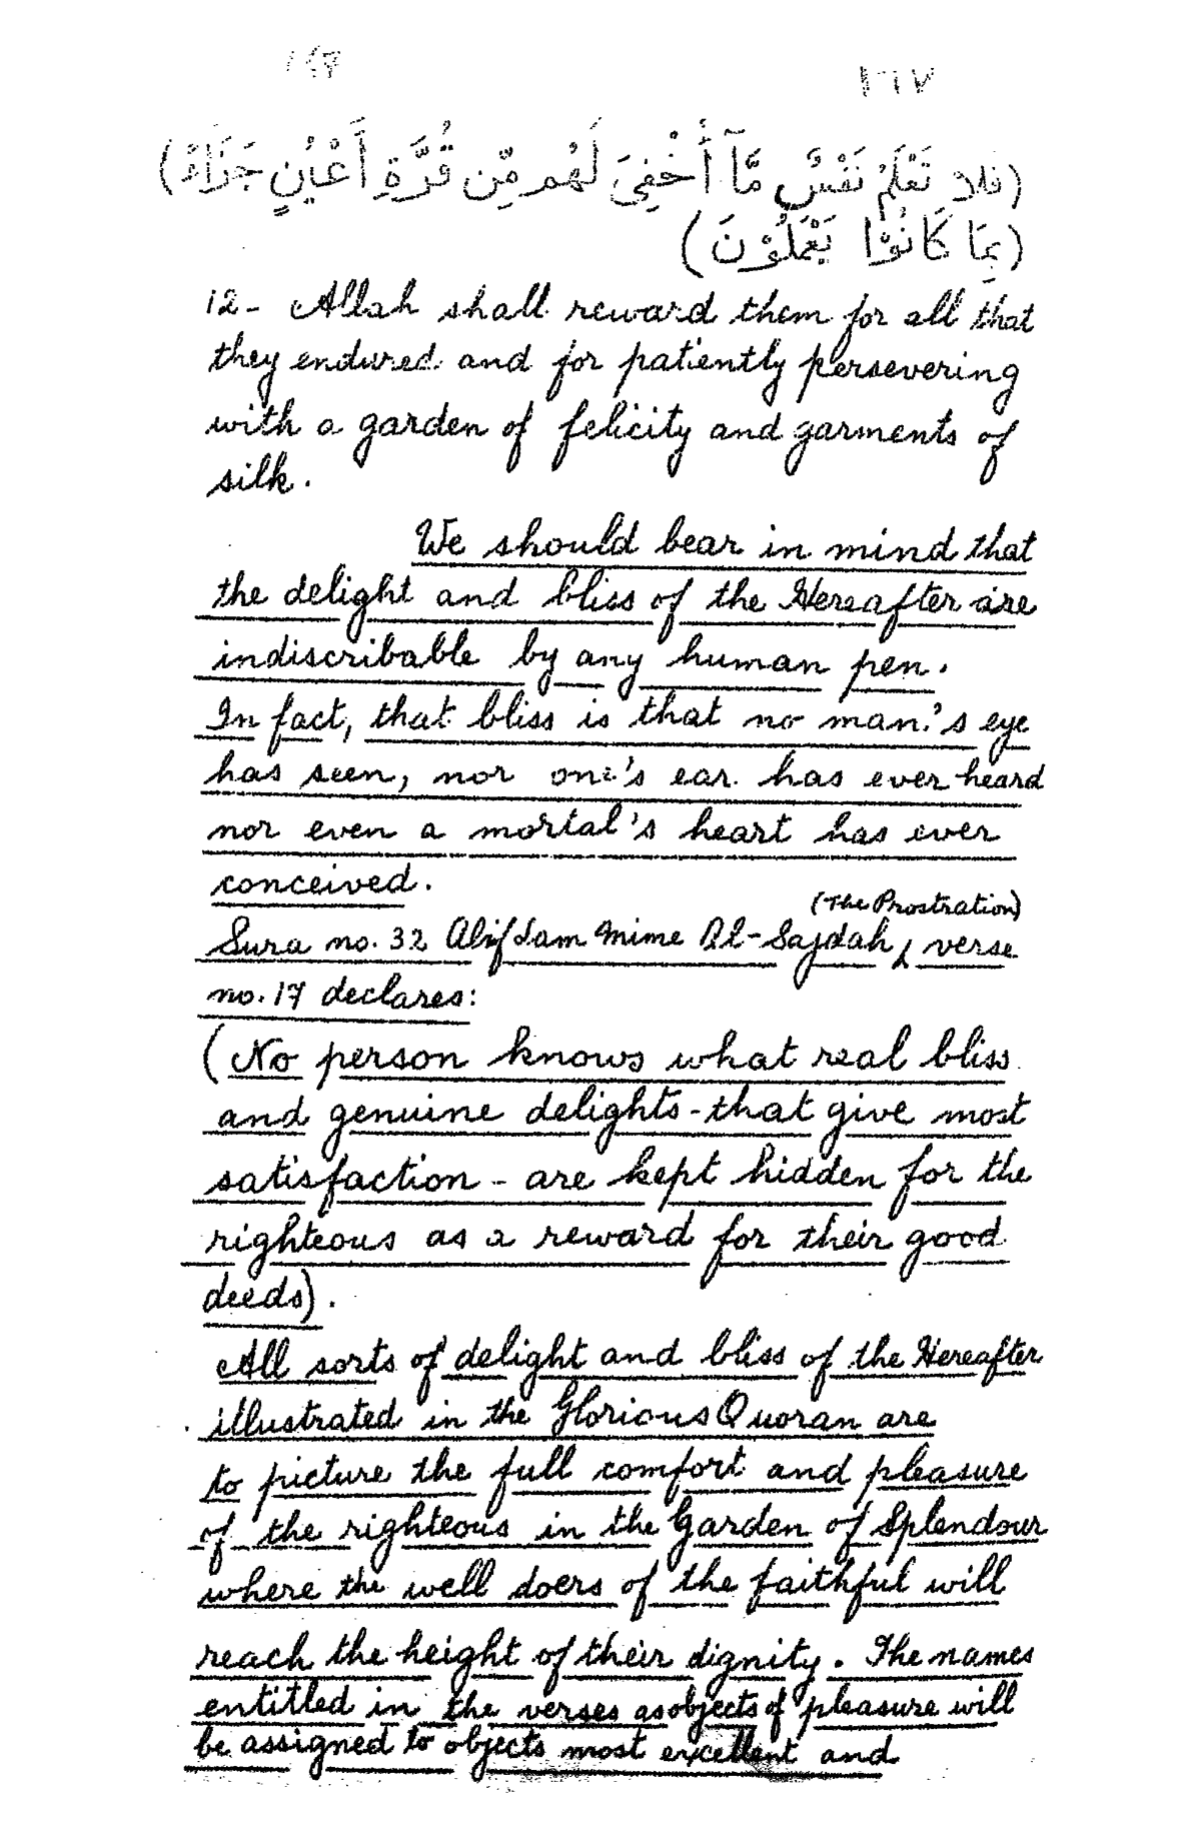 ١٦٧
(فلا تَعْلَمُ نَفْسٌ مَّآ أُخْفِىَ لَهُم مِّن قُرَّةِ أَعْيُنٍ جَزَآءً)
(بِمَا كَانُوْا يَعْمَلُوْنَ)
12- Allah shall reward them for all that
they endured and for patiently persevering
with a garden of felicity and garments of
silk.
We should bear in mind that
the delight and bliss of the Hereafter are
indiscribable by any human pen.
In fact, that bliss is that no man's eye
has seen, nor one's ear has ever heard
nor even a mortal's heart has ever
conceived.
(The Prostration)
Sura no. 32 Alif Lam Mime Al-Sajdah, verse
no. 17 declares:
(No person knows what real bliss
and genuine delights - that give most
satisfaction - are kept hidden for the
righteous as a reward for their good
deeds).
All sorts of delight and bliss of the Hereafter
illustrated in the Glorious Quoran are
to picture the full comfort and pleasure
of the righteous in the Garden of Splendour
where the well doers of the faithful will
reach the height of their dignity. The names
entitled in the verses as objects of pleasure will
be assigned to objects most excellent and